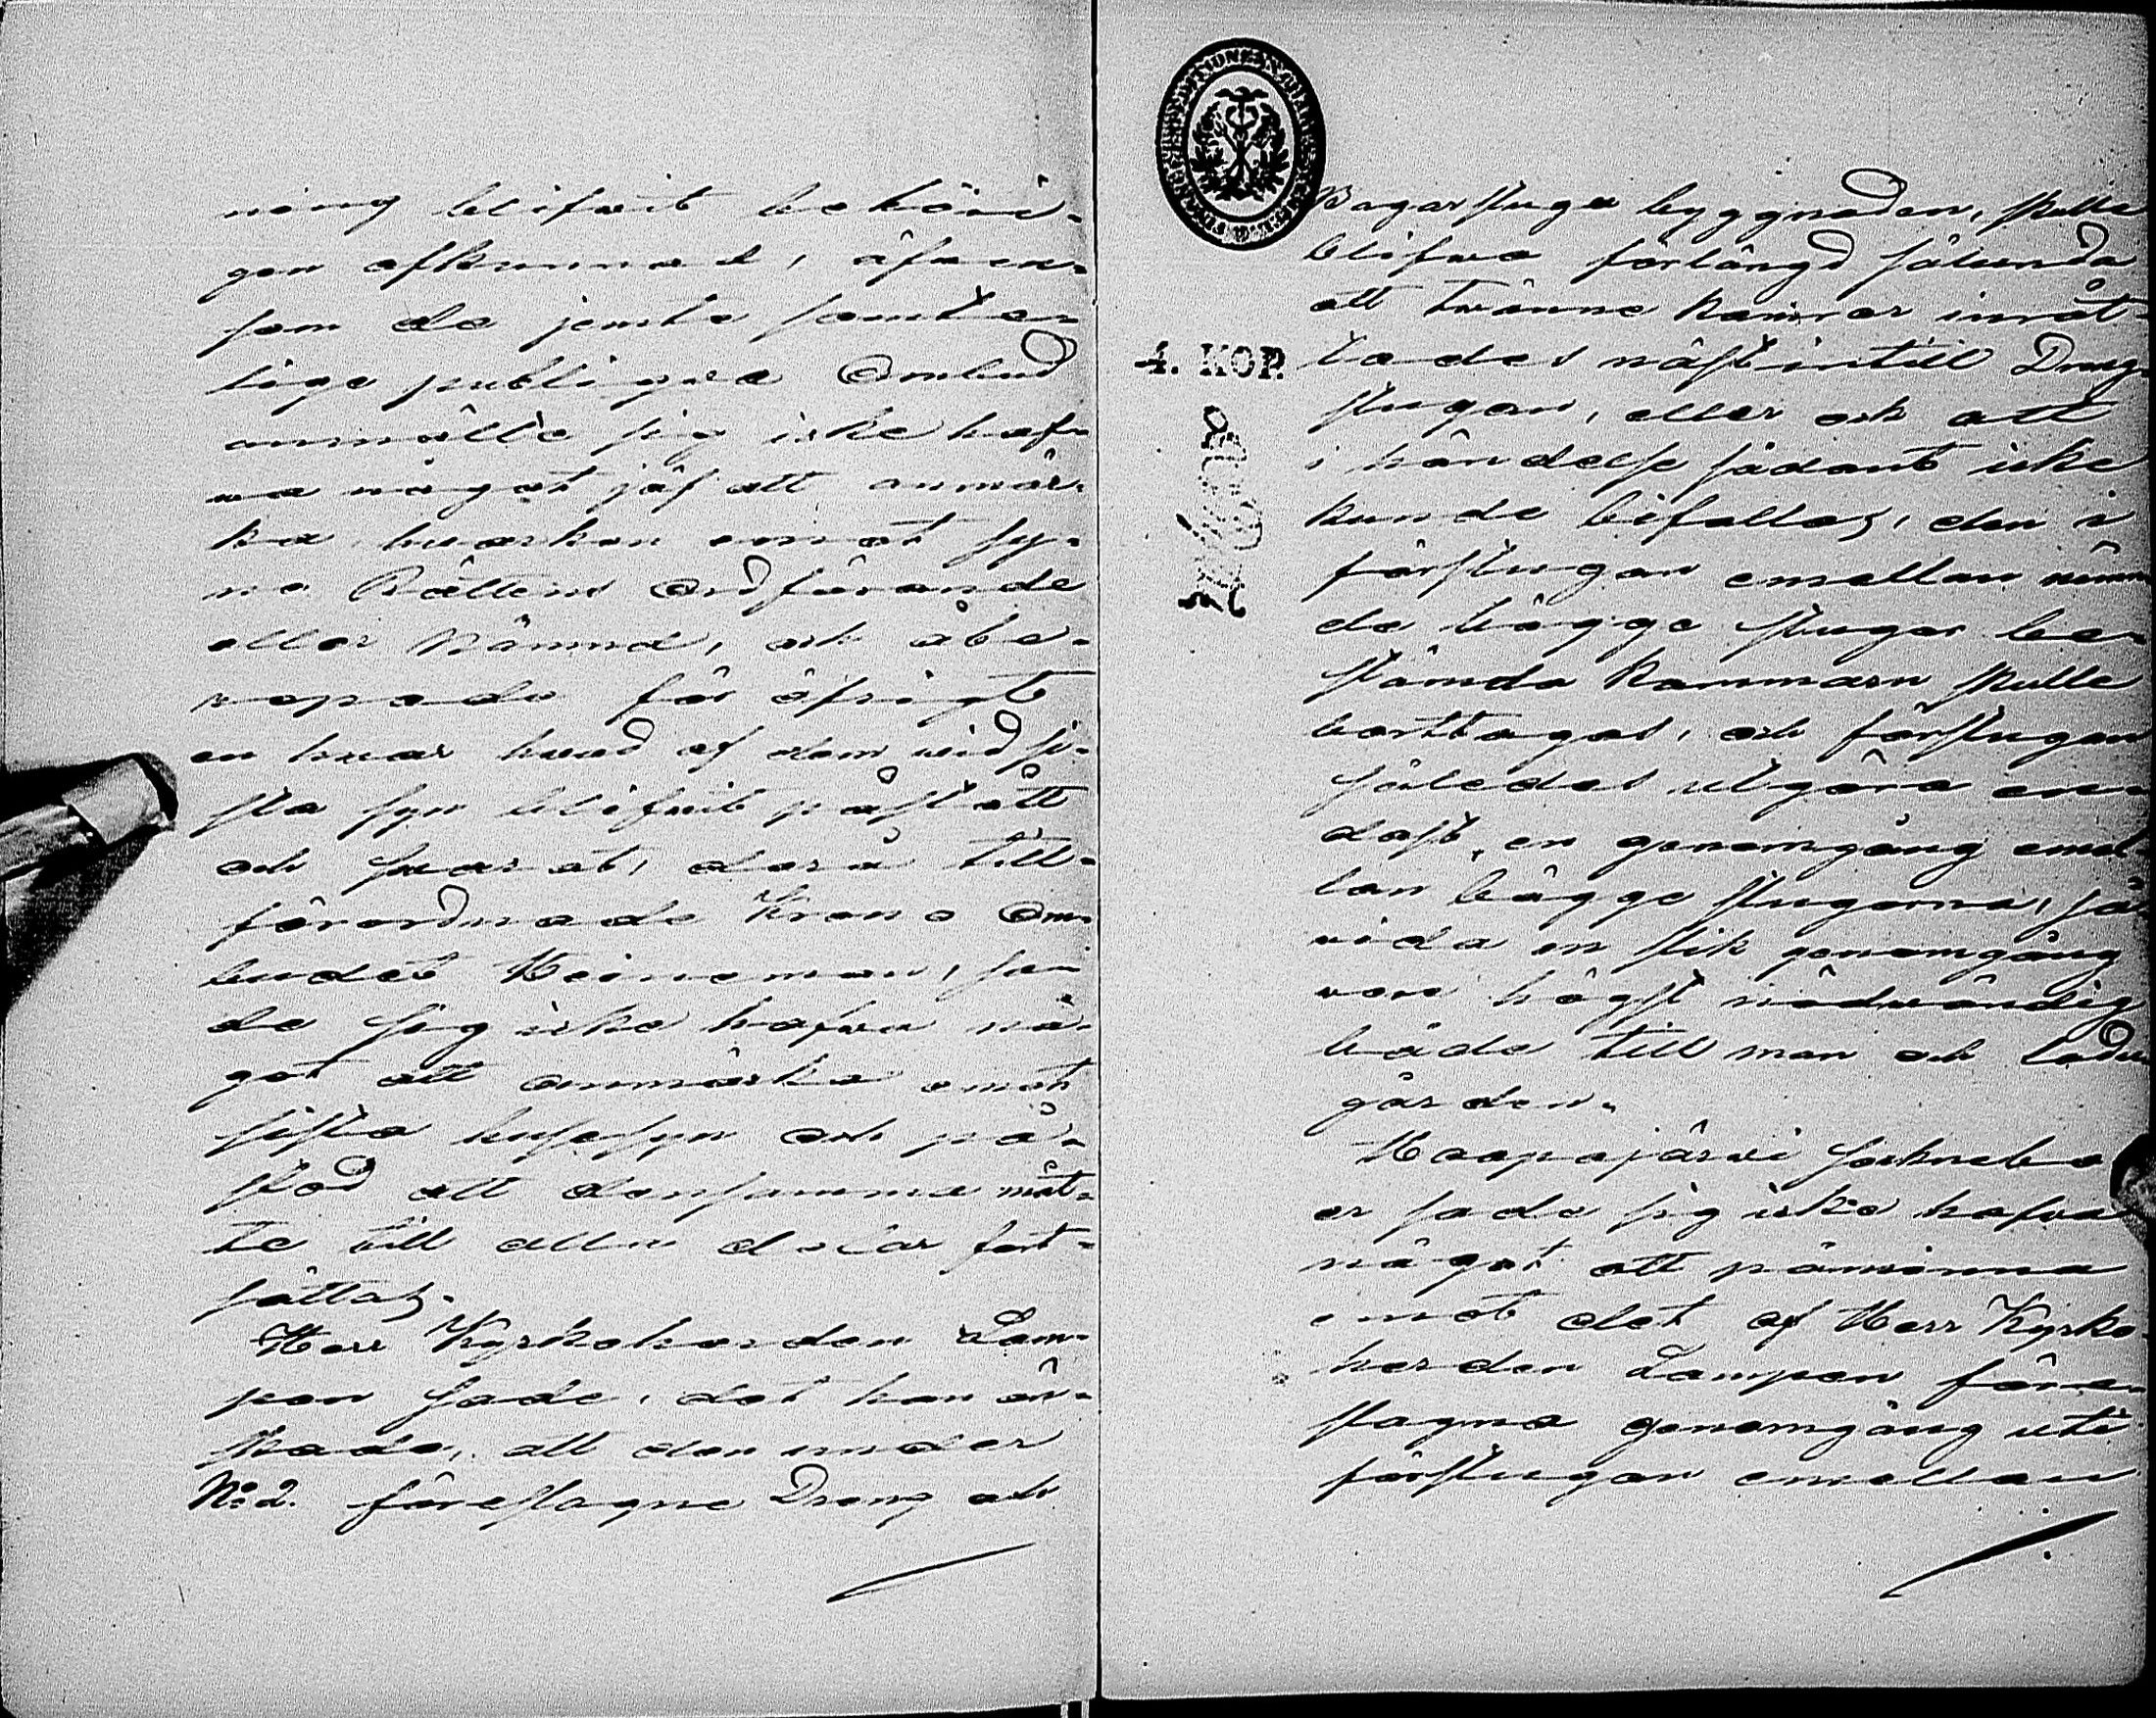 ning blifvit behöri-
gen afkunnad, äfven-
som de jemte samte-
lige publiqua Ombud
anmälte sig icke haf-
va något jäf att anmär-
ka hvarken emot Sy-
ne Rättens Ordförande
eller Nämnd, och åbe-
ropade för öfrigt
en hvar hvad af dem vid si-
sta syn blifvit påstått
och svarat, dera till-
förordnade Krono Om-
budet Heineman, sa-
de sig icke hafva nå-
got att anmärka emot
sista husesyn och på-
stod att densamma måt-
te till alla delar fast-
ställas.
Herr Kyrkoherden Lam-
pen sade, det han ön-
skade, att den under
No 2. föreslagne Dreng och
Bagarstugu byggnaden, skulle
blifva förlängd sålunda
att tvänne kamrar inrät-
tades näst intill Dreng
stugan, eller och att
i händelse sådant icke
kunde bifallas, den i
förstugan emellan nämn
de bägge stugor be-
stämda Kammarn skulle
borttagas, och förstugan
således utgöra en-
dast en genomgång emel
lan bägge stugorna, så
vida en slik genomgång
vore högst nödvändig
både till man och Ladu
gården.
Haapajärvi sockneboe
er sade sig icke hafva
något att påminna
emot det af Herr Kyrko
herden Lampen före-
slagna genomgång uti
förstugan emellan
4. KOP.